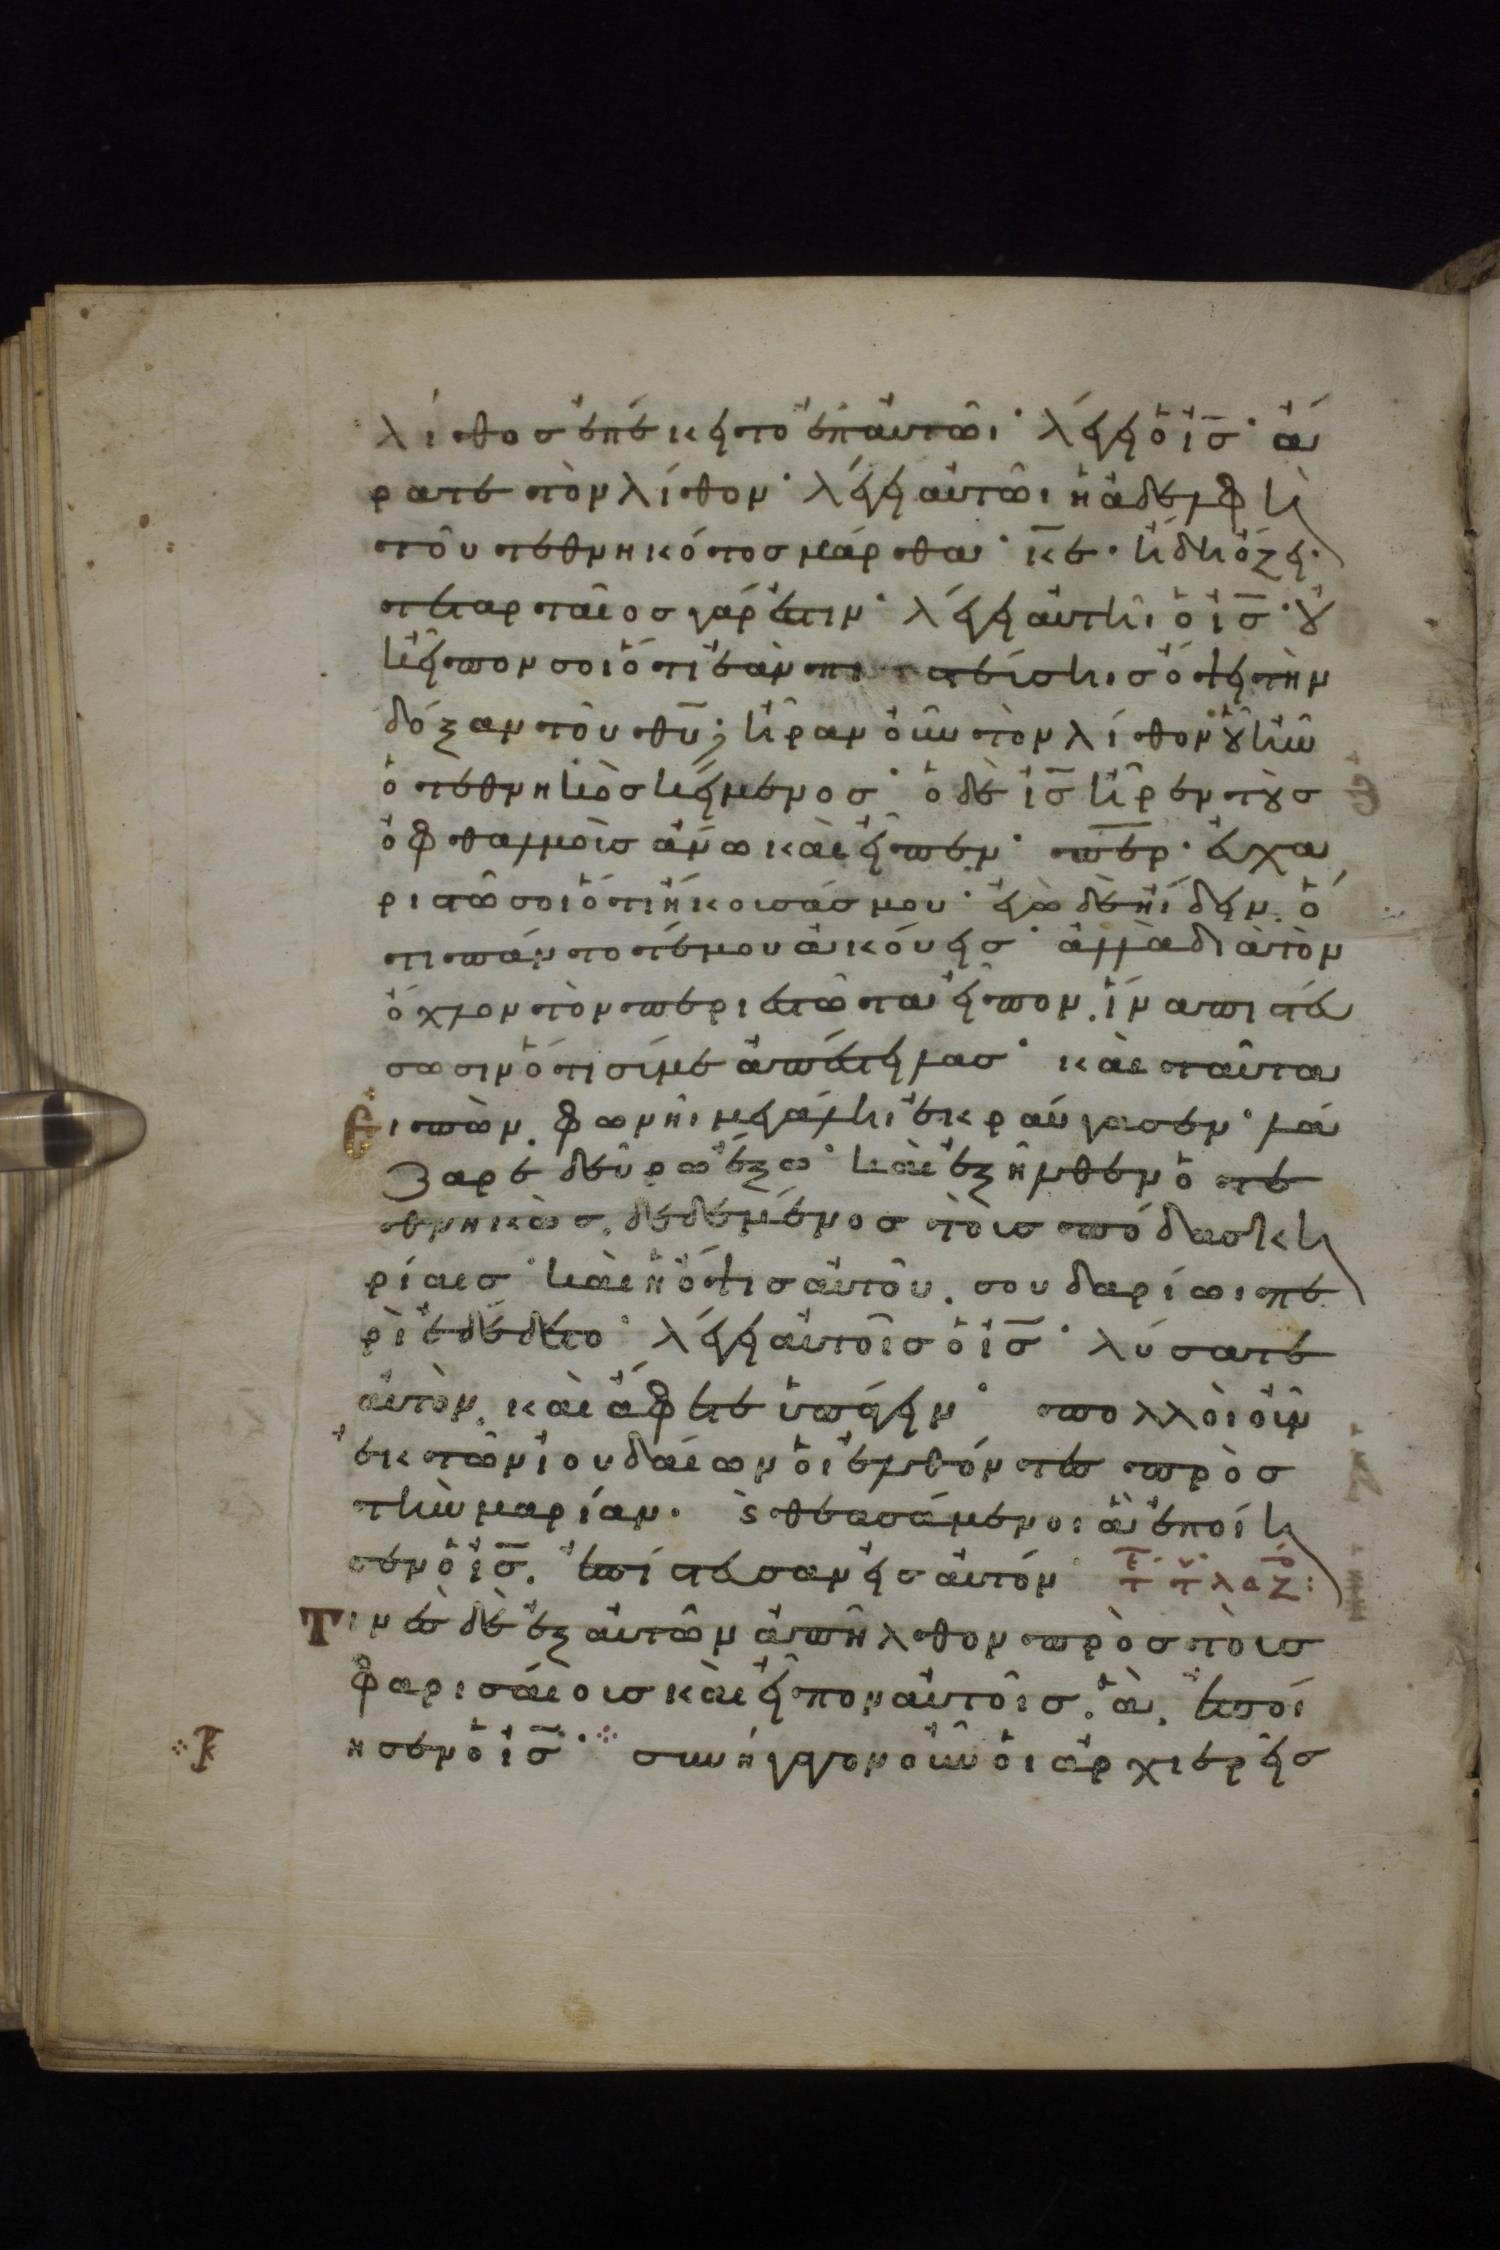 λίθος ἐπέκειτο ἐπ αὐτῶι· λέγει ὁ ις̅· ἄ
ρατε τὸν λίθον· λέγει αὐτῶι ἡ ἀδελφὴ
τοῦ τεθνηκότος μάρθα· κ̅ε· ἤδη ὄζει·
τεταρταῖος γάρ ἐστιν· λέγει αὐτῆι ὁ ις̅· οὐ
κ εἶπον σοι ὅτι ἐὰν πιστεύσηις ὄψει τὴν
δόξαν τοῦ θυ̅; ἦραν οὖν τὸν λίθον οὗ ἦν
ὁ τεθνηκὼς κείμενος· ὁ δὲ ις̅ ἦρεν τοὺς
ὀφθαλμοὺς ἄνω καὶ εἶπεν· π̅ερ· εὐχα
ριστῶ σοι ὅτι ἤκουσάς μου· ἐγὼ δὲ ἤιδειν. ὅ
τι πάντοτέ μου ἀκούεις· ἀλλὰ διὰ τὸν
ὄχλον τὸν περιεστῶτα εἶπον. ἵνα πιστεύ
σωσιν ὅτι σύ με ἀπέστειλας· καὶ ταῦτα
Ειπὼν. φωνῆι μεγάληι ἐκραύγασεν· λά
ζαρε δεῦρο ἔξω· καὶ ἐξῆλθεν ὁ τε
θνηκὼς. δεδεμένος τοὺς πόδας κη
ρίαις· καὶ ἡ ὄψις αὐτοῦ. σουδαρίωι πε
ριεδέδετο· λέγει αὐτοῖς ὁ ις̅· λύσατε
αὐτὸν. καὶ ἄφετε ὑπάγειν· πολλοὶ οὖν
ἐκ τῶν ἰουδαίων οἱ ἐλθόντες πρὸς
τὴν μαρίαν. ϛ θεασάμενοι ἃ ἐποίη
σεν ὁ ις̅. ἐπίστευσαν εἰς αὐτόν·
Τινὲς δὲ ἐξ αὐτῶν ἀπῆλθον πρὸς τοὺς
φαρισαίους καὶ εἶπον αὐτοῖς. ἃ. ἐποί
ησεν ὁ ις̅· συνήγαγον οὖν οἱ ἀρχιερεῖς